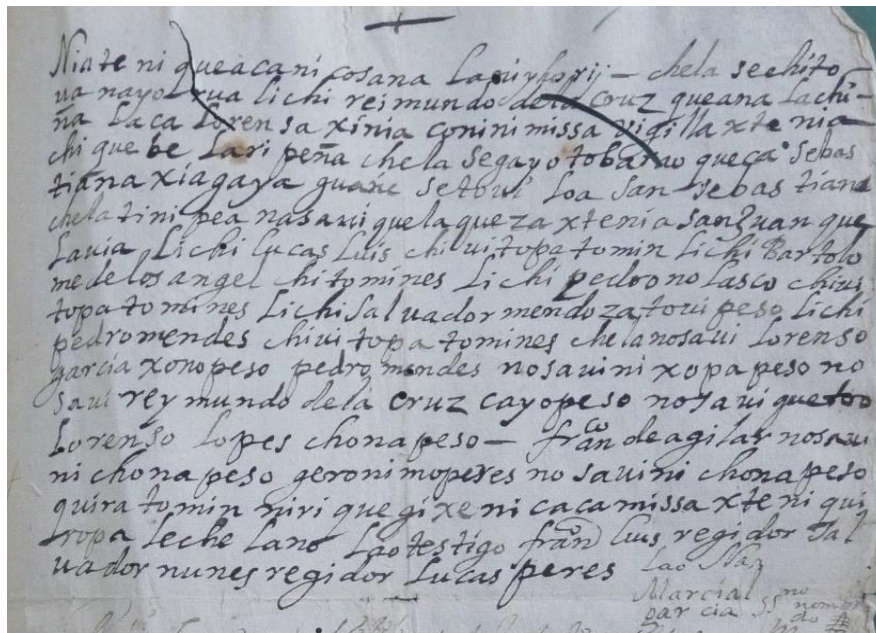 Niateni queacani cosana Lapiyhorij – chela sechito
va nayo rua lichi reimundo dela Cruz queana Lachi
ña Laca Lorensa xinia coninimissa vigilla xtenia
chi que be Lari peña chela Segayotobaruo queca Sebas
tiana xiagaya guane setovi Loa San sebastiana
chelatini pea nasavi quela queza xtenia san Juan que
Lavia Lichi Lucas Luis chivitopa tomin Lichi Bartolo
me delos angel chitomines Lichi pedro no Lasco chivi
topa tomines Lichi Salvador mendoza tovi peso Lichi
pedro mendes chivi topa tomines chela nosavi Lorenso
garcia xono peso pedro mendes nosavini xopa peso no
savi reymundo dela Cruz cayo peso nosavi quetoo
Lorenso Lopes chona peso – franco de agilar nosavi
ni chona peso geronimo peres no savini chona peso
quira tomin niri que gixeni caca missa xteni qui
ropa Leche Lano Lao testigo fran Luis regidor Sal
vador nunes regidor Lucas peres
Marcial
garcia